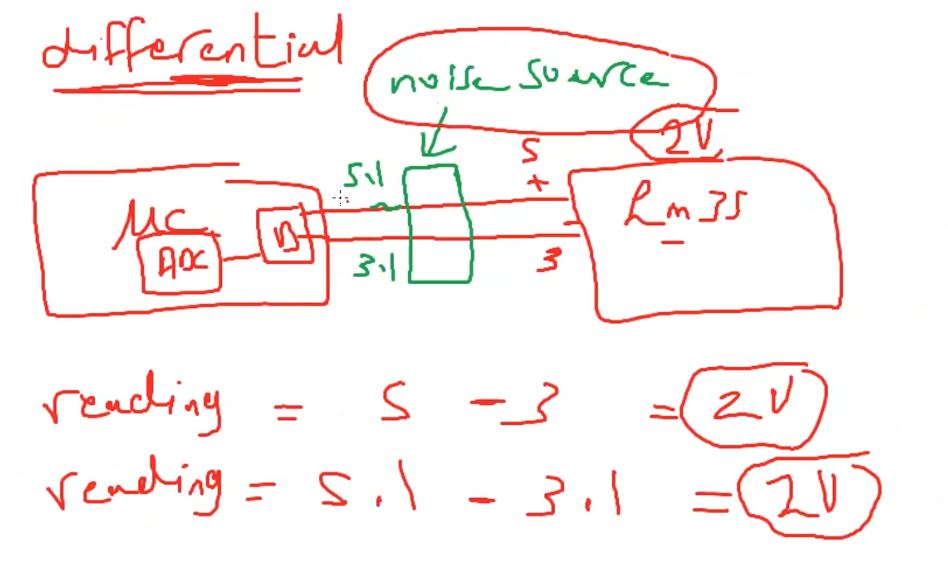 differential
noise source
2V
5
5.1
+
Lm35
-
μC
ADC
3.1
3
reading = 5 - 3 = 2V
reading = 5.1 - 3.1 = 2V